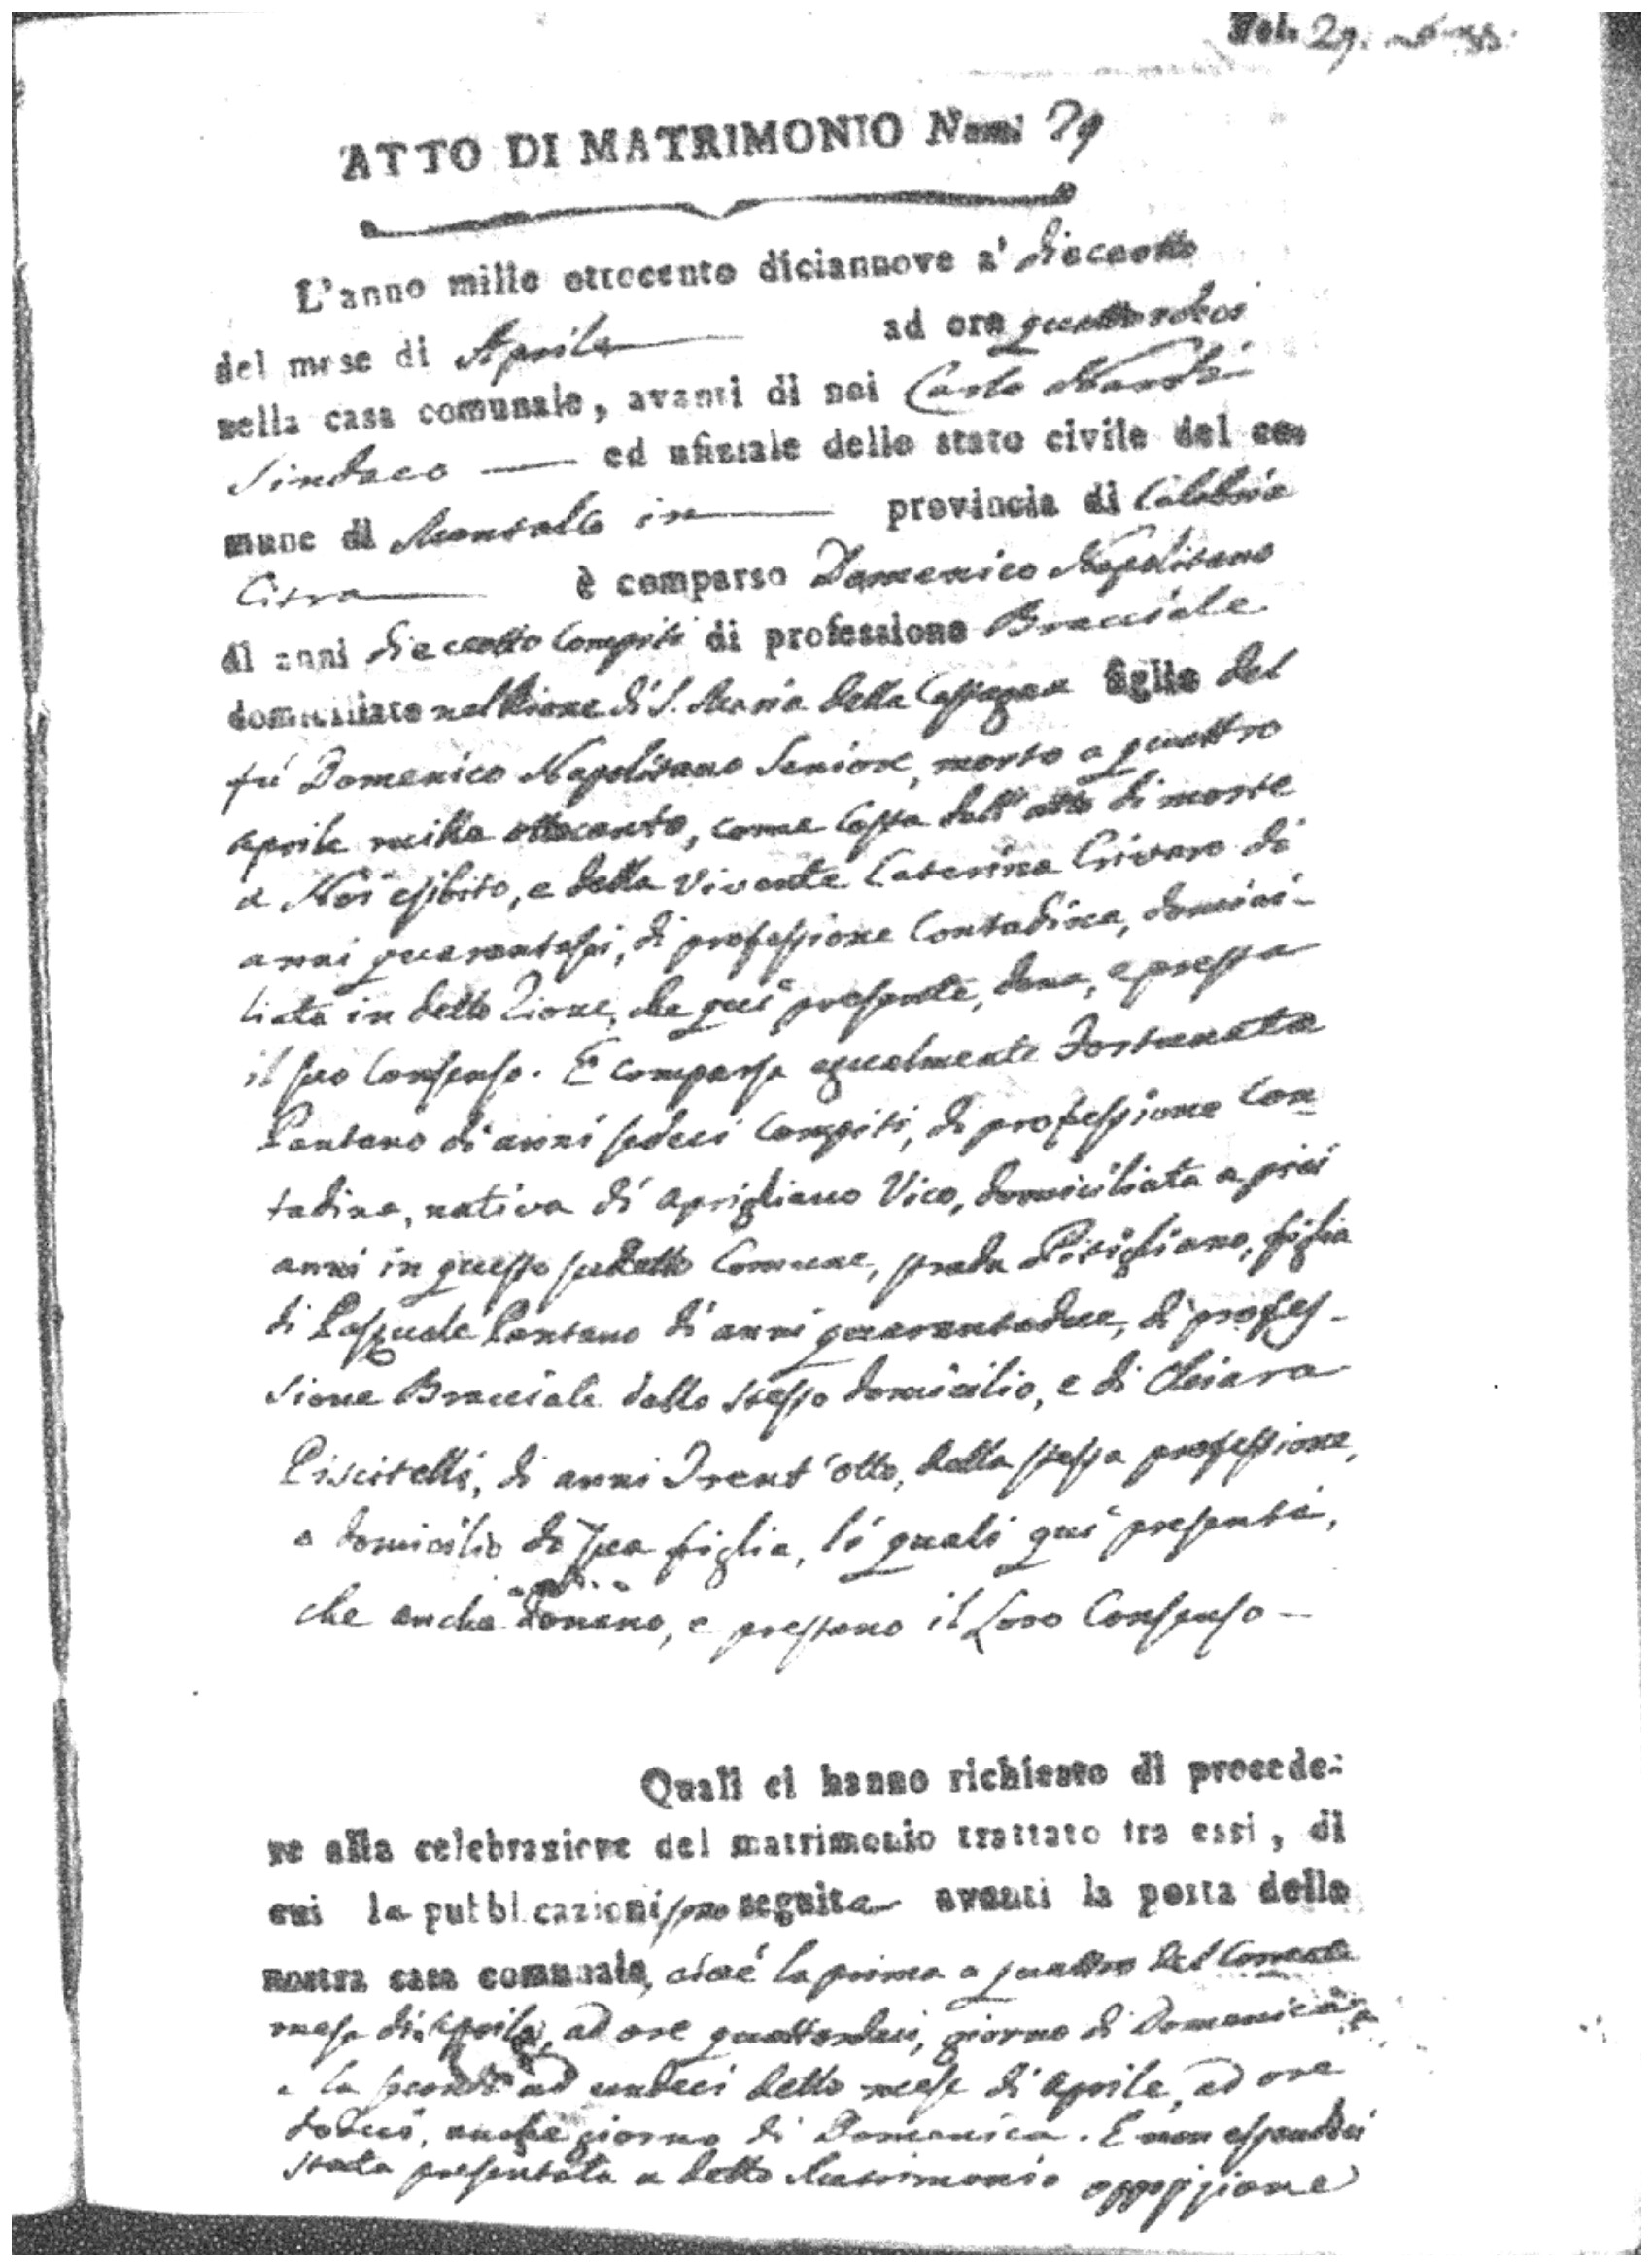 Fol. 29.
ATTO DI MATRIMONIO Num. 29
L'anno mille ottocento diciannove a' dieceotto
del mese di Aprile ad ore quattordeci
nella casa comunale, avanti di noi Carlo Nardi
Sindaco ed ufiziale dello stato civile del co-
mune di Montalto in provincia di Calabria
Citra è comparso Domenico Napolitano
di anni dieceotto Compiti di professione Bracciale
domiciliato nel Rione di S. Maria della figlio del
fù Domenico Napolitano Seniore, morto a quattro
aprile mille ottocento, come costa dall'atto di morte
a Noi esibito, e della vivente Caterina Crivaro di
anni quarantasei, di professione Contadina, domici-
liata in detto Rione, che qui presente, dona, e presta
il suo Consenso. E comparsa egualmente Fortunata
Pantano di anni sedeci Compiti, di professione Con
tadina, nativa di Aprigliano Vico, domiciliata a più
anni in questo sudetto Comune, strada Pisigliano, figlia
di Pasquale Pantano di anni quarantadue, di profes-
sione Bracciale dello stesso domicilio, e di Chiara
Piscitelli, di anni Trent'otto, della stessa professione,
e domicilio di sua figlia, li quali qui presenti,
che anche donano, e prestano il Loro Consenso -
Quali ci hanno richiesto di procede-
re alla celebrazione del matrimonio trattato tra essi, di
cui le pubblicazioni sono seguita avanti la porta della
nostra casa comunale, cioè la prima a quattro del Corrente
mese di Aprile, ad ore quattordeci, giorno di Domenica,
e la seconda ad undeci detto mese di Aprile, ad ore
dodeci, anche giorno di Domenica. E non essendoci
stata presentata a detto Matrimonio opposizione